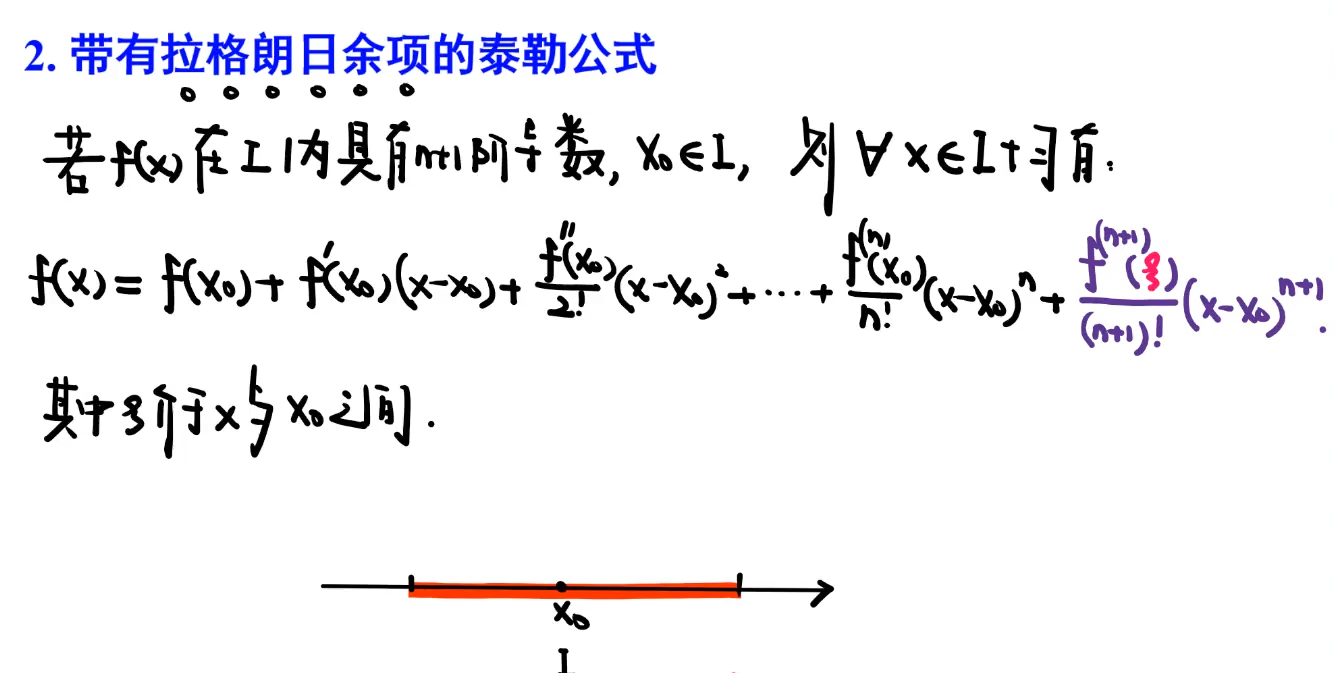 2. 带有拉格朗日余项的泰勒公式
若f(x)在I内具有n+1阶导数, x₀∈I, 则∀x∈I均有:
f(x) = f(x₀) + f′(x₀)(x-x₀) + f″(x₀)/2! (x-x₀)² + ⋯ + f⁽ⁿ⁾(x₀)/n! (x-x₀)ⁿ + f⁽ⁿ⁺¹⁾(ξ)/(n+1)! (x-x₀)ⁿ⁺¹.
其中ξ介于x与x₀之间.
x₀
I